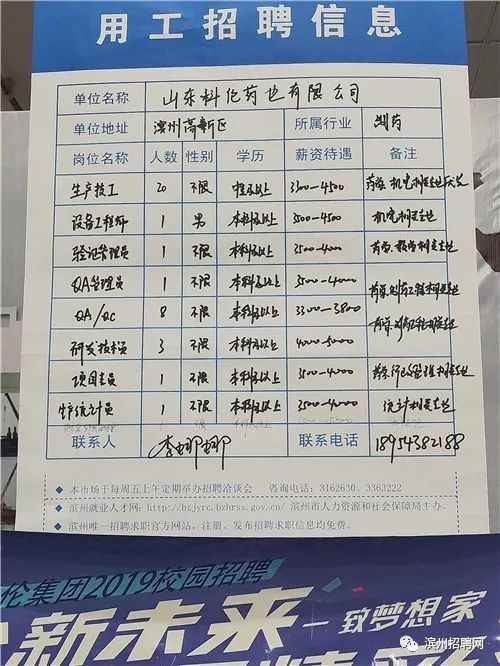 用工招聘信息
单位名称 山东科伦药业有限公司
单位地址 滨州高新区 所属行业 制药
岗位名称 人数 性别 学历 薪资待遇 备注
生产技工 20 不限 3300—4500 药学、机电相关专业
设备工程师 1 男 本科及以上 3500—4500 机电相关专业
验证管理员 1 不限 本科及以上 3500—4000 药学、相关专业
QA管理员 1 不限 本科及以上 3500—4000 药学、制药工程相关专业
QA/QC 8 不限 本科及以上 3300—3800 药学、制药工程相关专业
研发技术员 3 不限 本科及以上 4000—5000
项目专员 1 不限 本科及以上 3500—4000 药学、行政管理相关专业
生产统计员 1 不限 本科及以上 3500—4000 统计相关专业
联系人 李娜娜 联系电话 18954382188
◆ 本市场于每周五上午定期举办招聘洽谈会 咨询电话：3162630、3363222
◆ 滨州就业人才网：http://bzjyrc.bzhrss.gov.cn/ 滨州市人力资源和社会保障局主办。
滨州唯一招聘求职官方网站，注册、发布招聘求职信息均免费。
伦集团2019校园招聘
新未来 一致梦想家
滨州招聘网